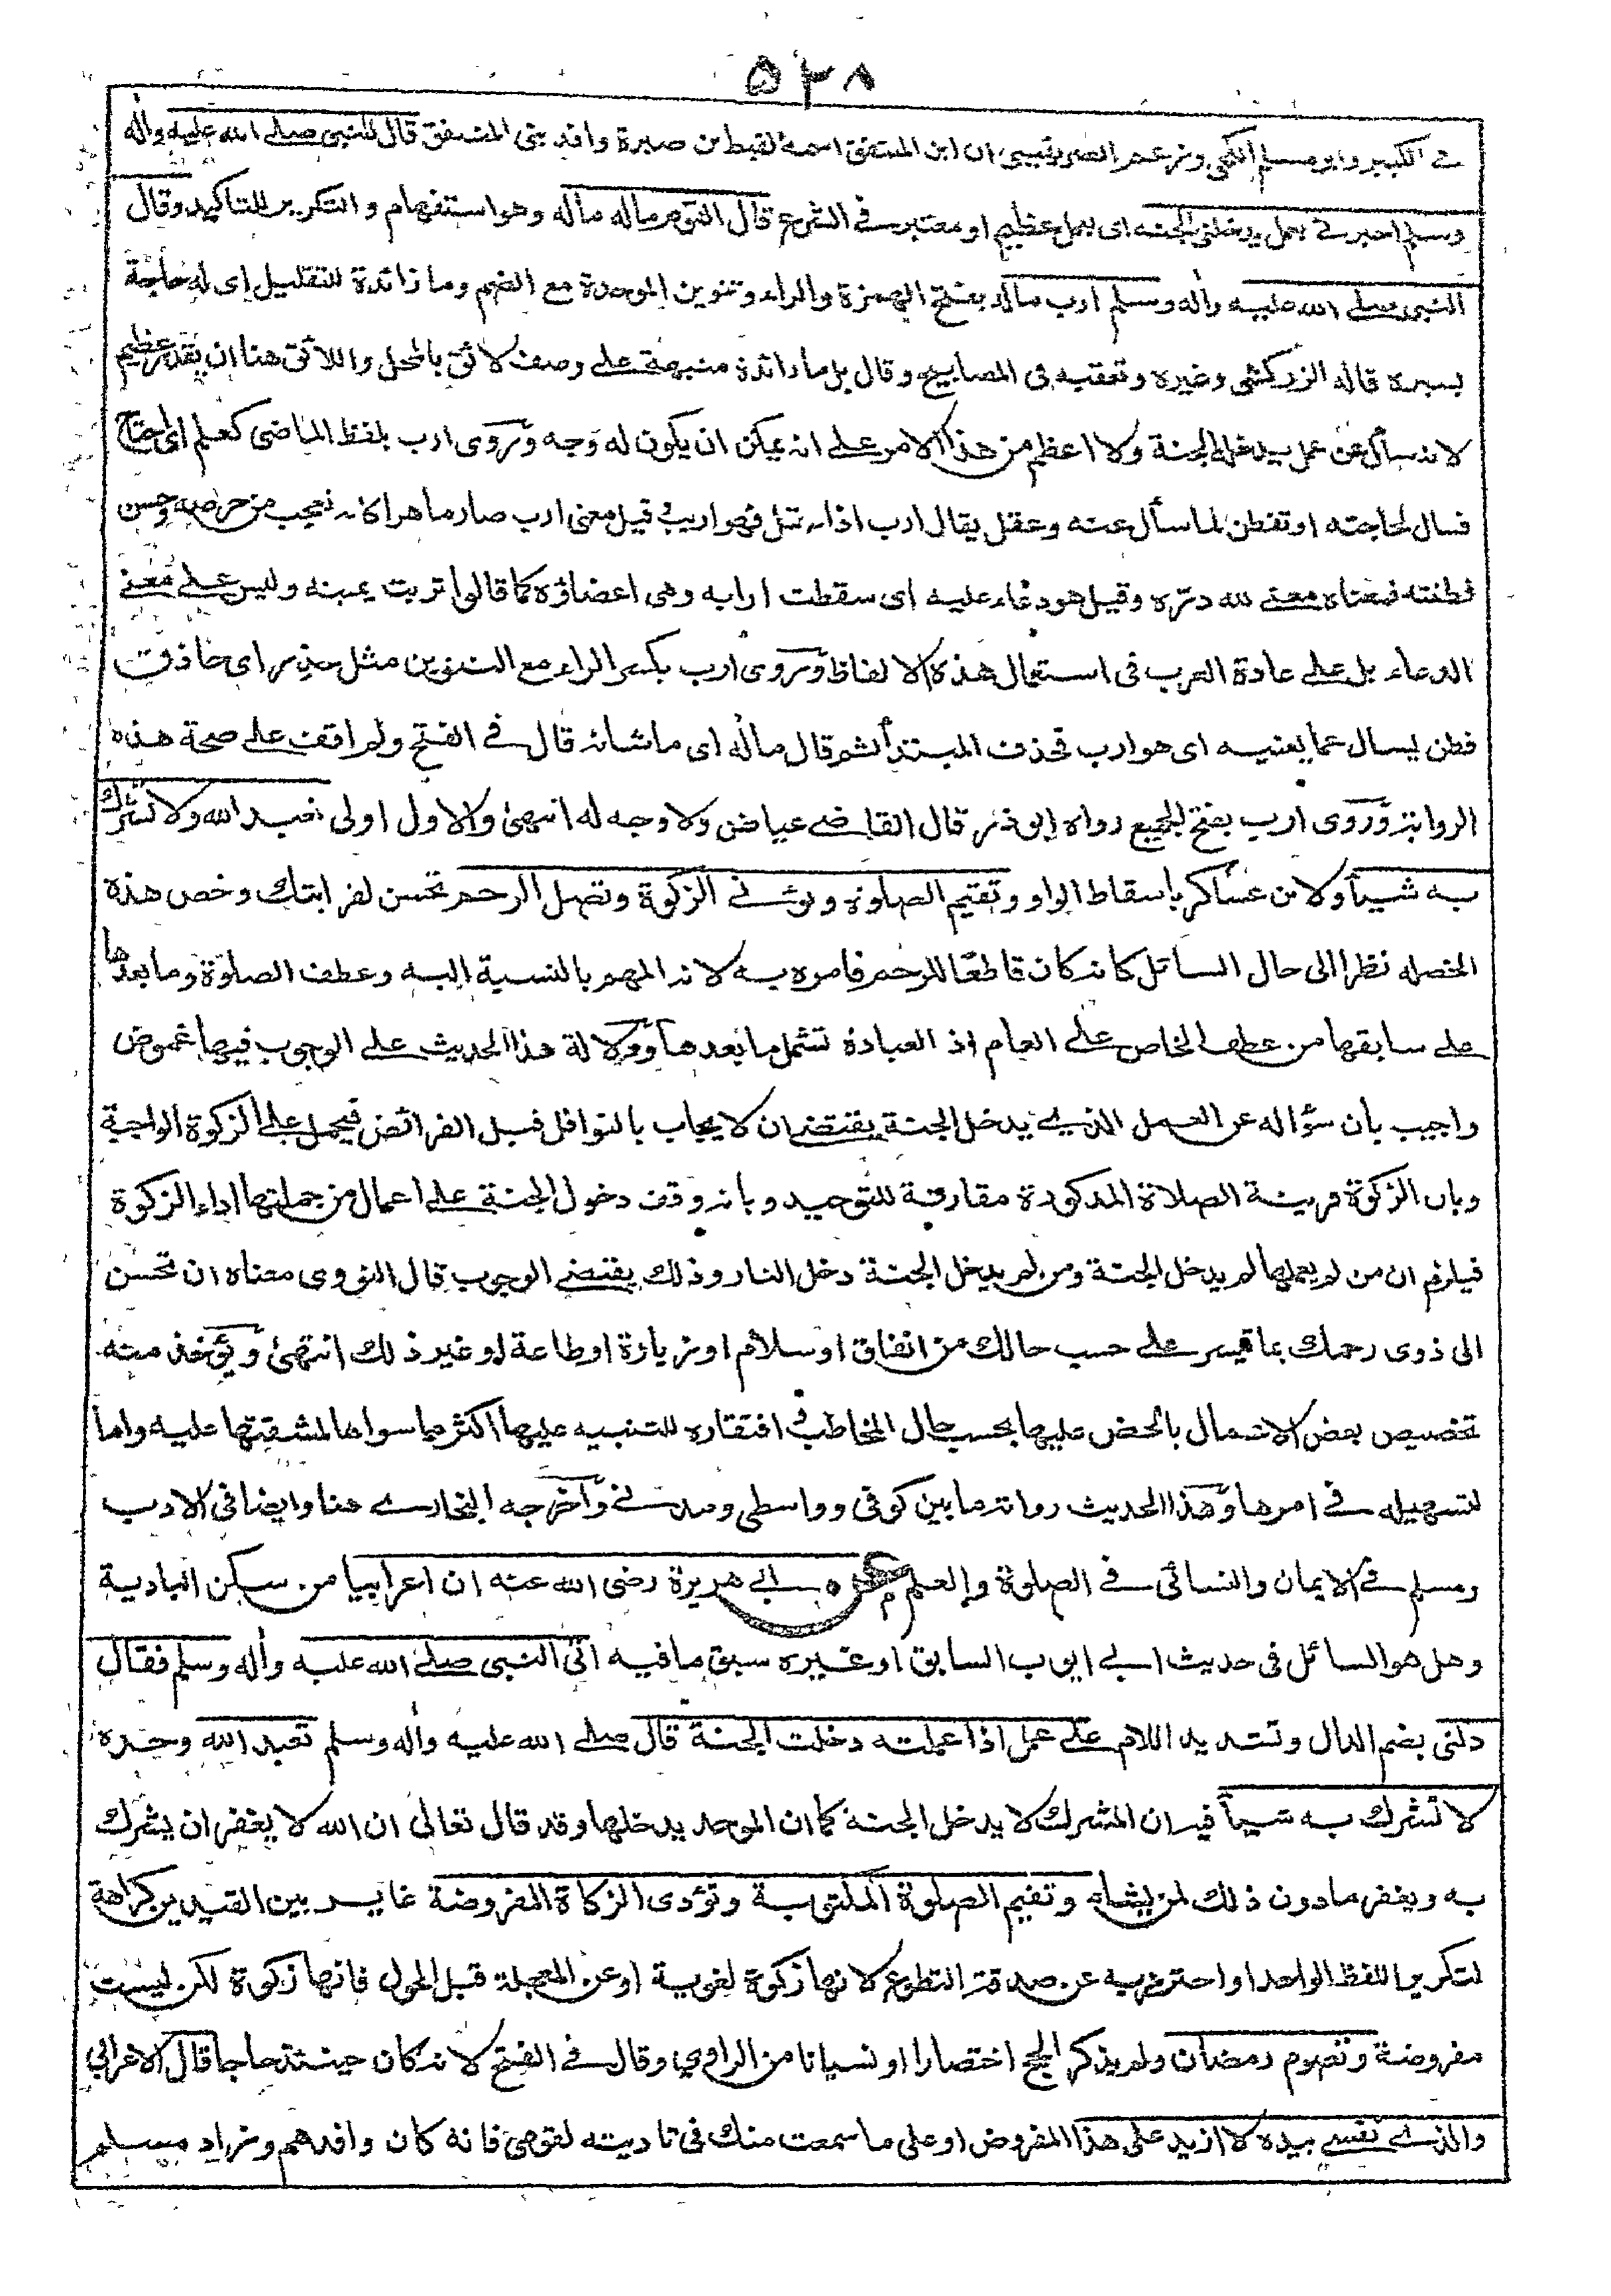 ٥٢٨
في الكبير وابو مسلم الكجي وزعم الصريفيني ان ابن المنتفق اسمه لقيط بن صبرة وافد بني المنتفق قال للنبي صلى الله عليه وآله
وسلم اخبرني بعمل يدخلني الجنة اى بعمل عظيم او معتبر في الشرع قال القوم ماله ماله وهو استفهام والتكرير للتاكيد وقال
النبي صلى الله عليه وآله وسلم ارب ماله بفتح الهمزة والراء وتنوين الموحدة مع الضم وما زائدة للتقليل اى له حاجة
يسيرة قاله الزركشى وغيره وتعقبه فى المصابيح وقال بل ما زائدة منبهة على وصف لائق بالمحل واللائق هنا ان يقدر عظيم
لانه سأل عن عمل يدخله الجنة ولا اعظم من هذا الامر على انه يمكن ان يكون له وجه وروى ارب بلفظ الماضى كعلم اى احتاج
فسال لحاجته او تفطن لما سأل عنه وعقل يقال ارب اذا عقل فهو اريب وقيل معنى ارب صار ماهرا كانه تعجب من حرصه وحسن
فطنته فمعناه معنى لله درّه وقيل هو دعاء عليه اى سقطت ارابه وهى اعضاؤه كما قالوا تربت يمينه وليس على معنى
الدعاء بل على عادة العرب فى استعمال هذه الالفاظ وروى ارب بكسر الراء مع التنوين مثل حذر اى حاذق
فطن يسال عما يعنيه اى هو ارب فحذف المبتدأ ثم قال ماله اى ما شانه قال في الفتح ولم اقف على صحة هذه
الرواية وروى ارب بفتح الجميع رواه ابوذر قال القاضي عياض ولا وجه له انتهى والاول اولى تعبد الله ولا تشرك
به شيأ ولابن عساكر باسقاط الواو وتقيم الصلوة وتؤتي الزكوة وتصل الرحم تحسن لقرابتك وخص هذه
الخصلة نظرا الى حال السائل كانه كان قاطعًا للرحم فامره به لانه المهم بالنسبة اليه وعطف الصلوة وما بعدها
على سابقها من عطف الخاص على العام اذ العبادة تشمل ما بعدها ودلالة هذا الحديث على الوجوب فيها غموض
واجيب بأن سؤاله عن العمل الذي يدخل الجنة يقتضى ان لا يجاب بالنوافل قبل الفرائض فيحمل على الزكوة الواجبة
وبان الزكوة قرينة الصلاة المذكورة مقارنة للتوحيد وبانه وقف دخول الجنة على اعمال من جملتها اداء الزكوة
فيلزم ان من لم يعملها لم يدخل الجنة ومن لم يدخل الجنة دخل النار وذلك يقتضي الوجوب قال النووى معناه ان تحسن
الى ذوى رحمك بما تيسر على حسب حالك من انفاق او سلام او زيارة او طاعة او غير ذلك انتهى ويؤخذ منه
تخصيص بعض الاعمال بالحض عليها بحسب حال المخاطب وافتقاره للتنبيه عليها اكثر مما سواها لمشقتها عليه واما
لتسهيله في امرها وهذا الحديث رواته ما بين كوفى وواسطى ومدني واخرجه البخاري هنا وايضا فى الادب
ومسلم في الايمان والنسائى في الصلوة والعلم عن ابي هريرة رضى الله عنه ان اعرابيا من سكن البادية
وهل هو السائل فى حديث ابي ايوب السابق او غيره سبق ما فيه اتى النبى صلى الله عليه وآله وسلم فقال
دلنى بضم الدال وتشديد اللام على عمل اذا عملته دخلت الجنة قال صلى الله عليه وآله وسلم تعبد الله وحده
لا تشرك به شيأ فيه ان المشرك لا يدخل الجنة كما ان الموحد يدخلها وقد قال تعالى ان الله لا يغفر ان يشرك
به ويغفر مادون ذلك لمن يشاء وتقيم الصلوة المكتوبة وتؤدى الزكاة المفروضة غاير بين القيدين كراهة
لتكرير اللفظ الواحد او احترز به عن صدقة التطوع لانها زكوة لغوية او عن المعجلة قبل الحول فانها زكوة لكن ليست
مفروضة وتصوم رمضان ولم يذكر الحج اختصارا او نسيانا من الراوي وقال في الفتح لانه كان حينئذ حاجا قال الاعرابي
والذي نفسي بيده لا ازيد على هذا المفروض او على ما سمعت منك فى تاديته لقومى فانه كان وافدهم وزاد مسلم